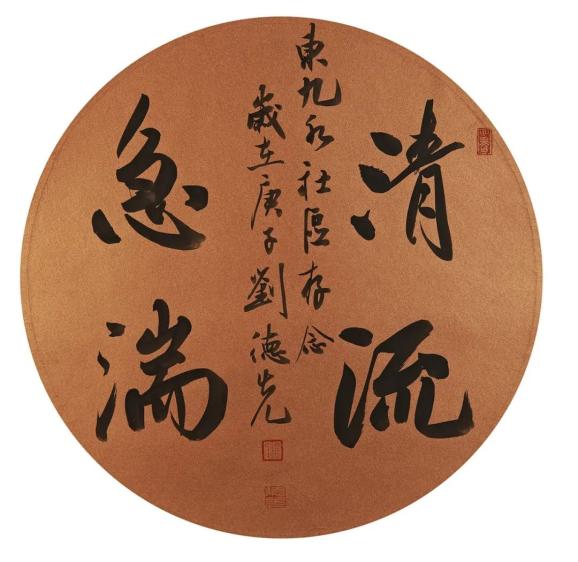 清流
急湍
東九水社區存念
歲在庚子劉德先